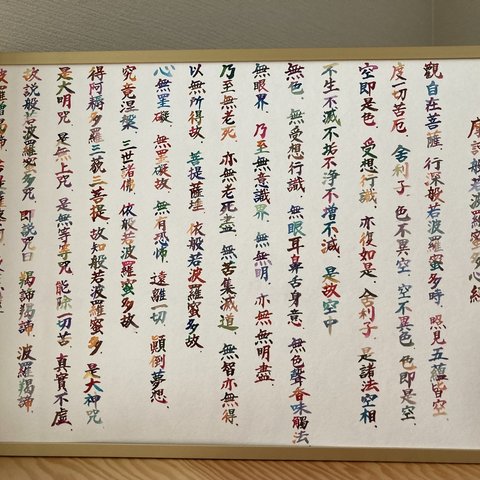 摩訶般若波羅蜜多心経
觀自在菩薩 行深般若波羅蜜多時 照見五蘊皆空
度一切苦厄 舎利子 色不異空 空不異色 色即是空
空即是色 受想行識 亦復如是 舎利子 是諸法空相
不生不滅 不垢不淨 不增不減 是故空中
無色 無受想行識 無眼耳鼻舌身意 無色聲香味觸法
無眼界 乃至無意識界 無無明 亦無無明盡
乃至無老死 亦無老死盡 無苦集滅道 無智亦無得
以無所得故 菩提薩埵 依般若波羅蜜多故
心無罣礙 無罣礙故 無有恐怖 遠離一切 顛倒夢想
究竟涅槃 三世諸佛 依般若波羅蜜多故
得阿耨多羅三藐三菩提 故知般若波羅蜜多 是大神咒
是大明咒 是無上咒 是無等等咒 能除一切苦 真實不虛
故説般若波羅蜜多咒 即説咒曰 羯諦羯諦 波羅羯諦
波羅僧羯諦